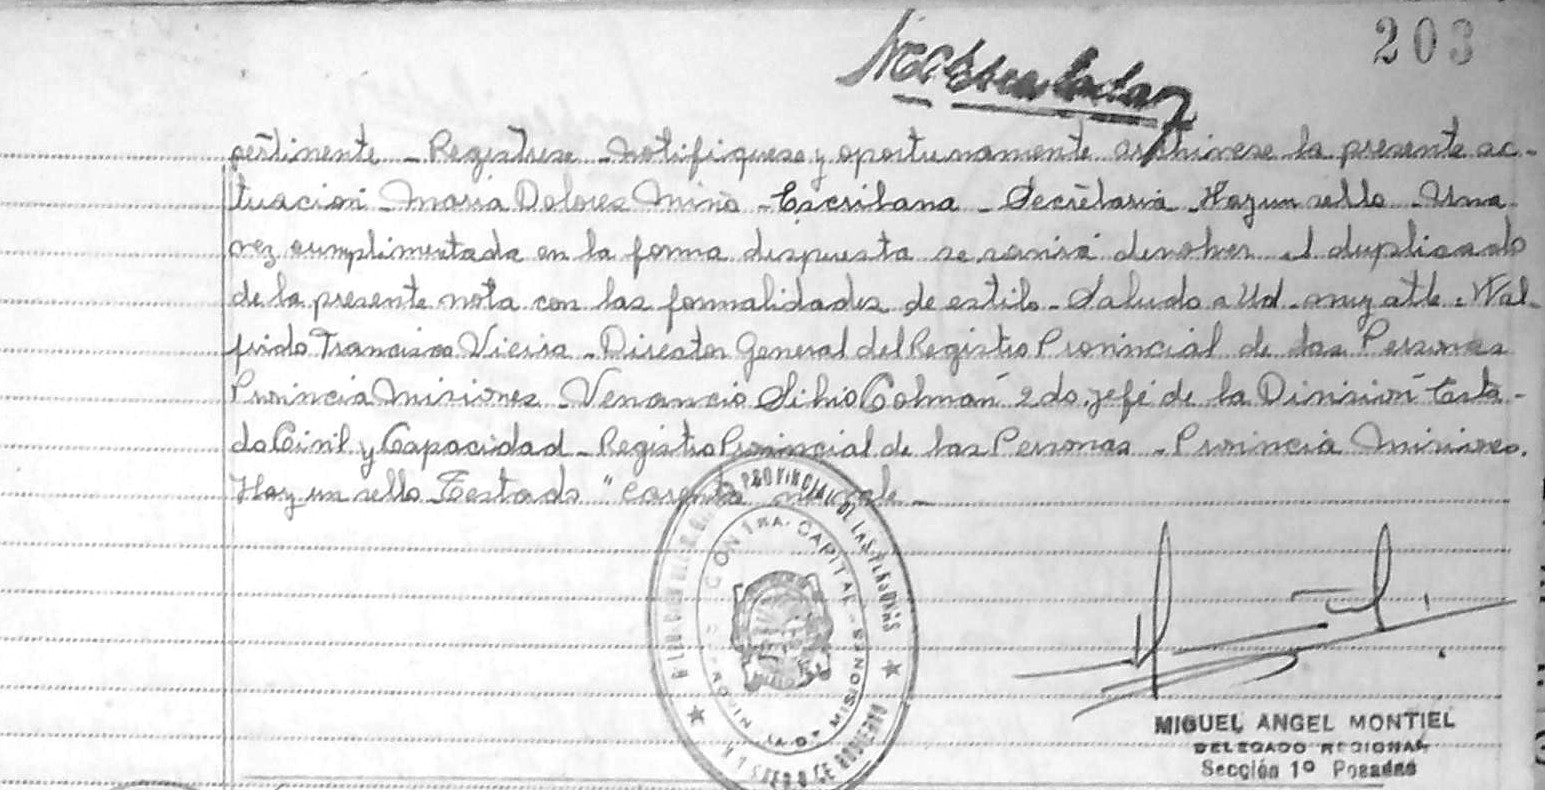 203
pertinente - Registrese - Notifiquese y oportunamente archivese la presente ac-
tuacion - Maria Dolores Miño - Escribana - Secretaria - Hay un sello - Una
vez cumplimentada en la forma dispuesta se servirá devolver el duplicado
de la presente nota con las formalidades de estilo - Saludo a Ud. muy atte. Wal-
frido Francisco Vieira - Director General del Registro Provincial de las Personas
Provincia Misiones - Venancio Silvio Colman 2do. jefe de la Division Esta-
do Civil y Capacidad - Registro Provincial de las Personas - Provincia Misiones.
Hay un sello Testado "carente" no vale -
PROVINCIAL DE LAS PERSONAS
CONTRA. CAPITAL
PROVINCIA DE MISIONES
MIGUEL ANGEL MONTIEL
DELEGADO REGIONAL
Sección 1º Posadas